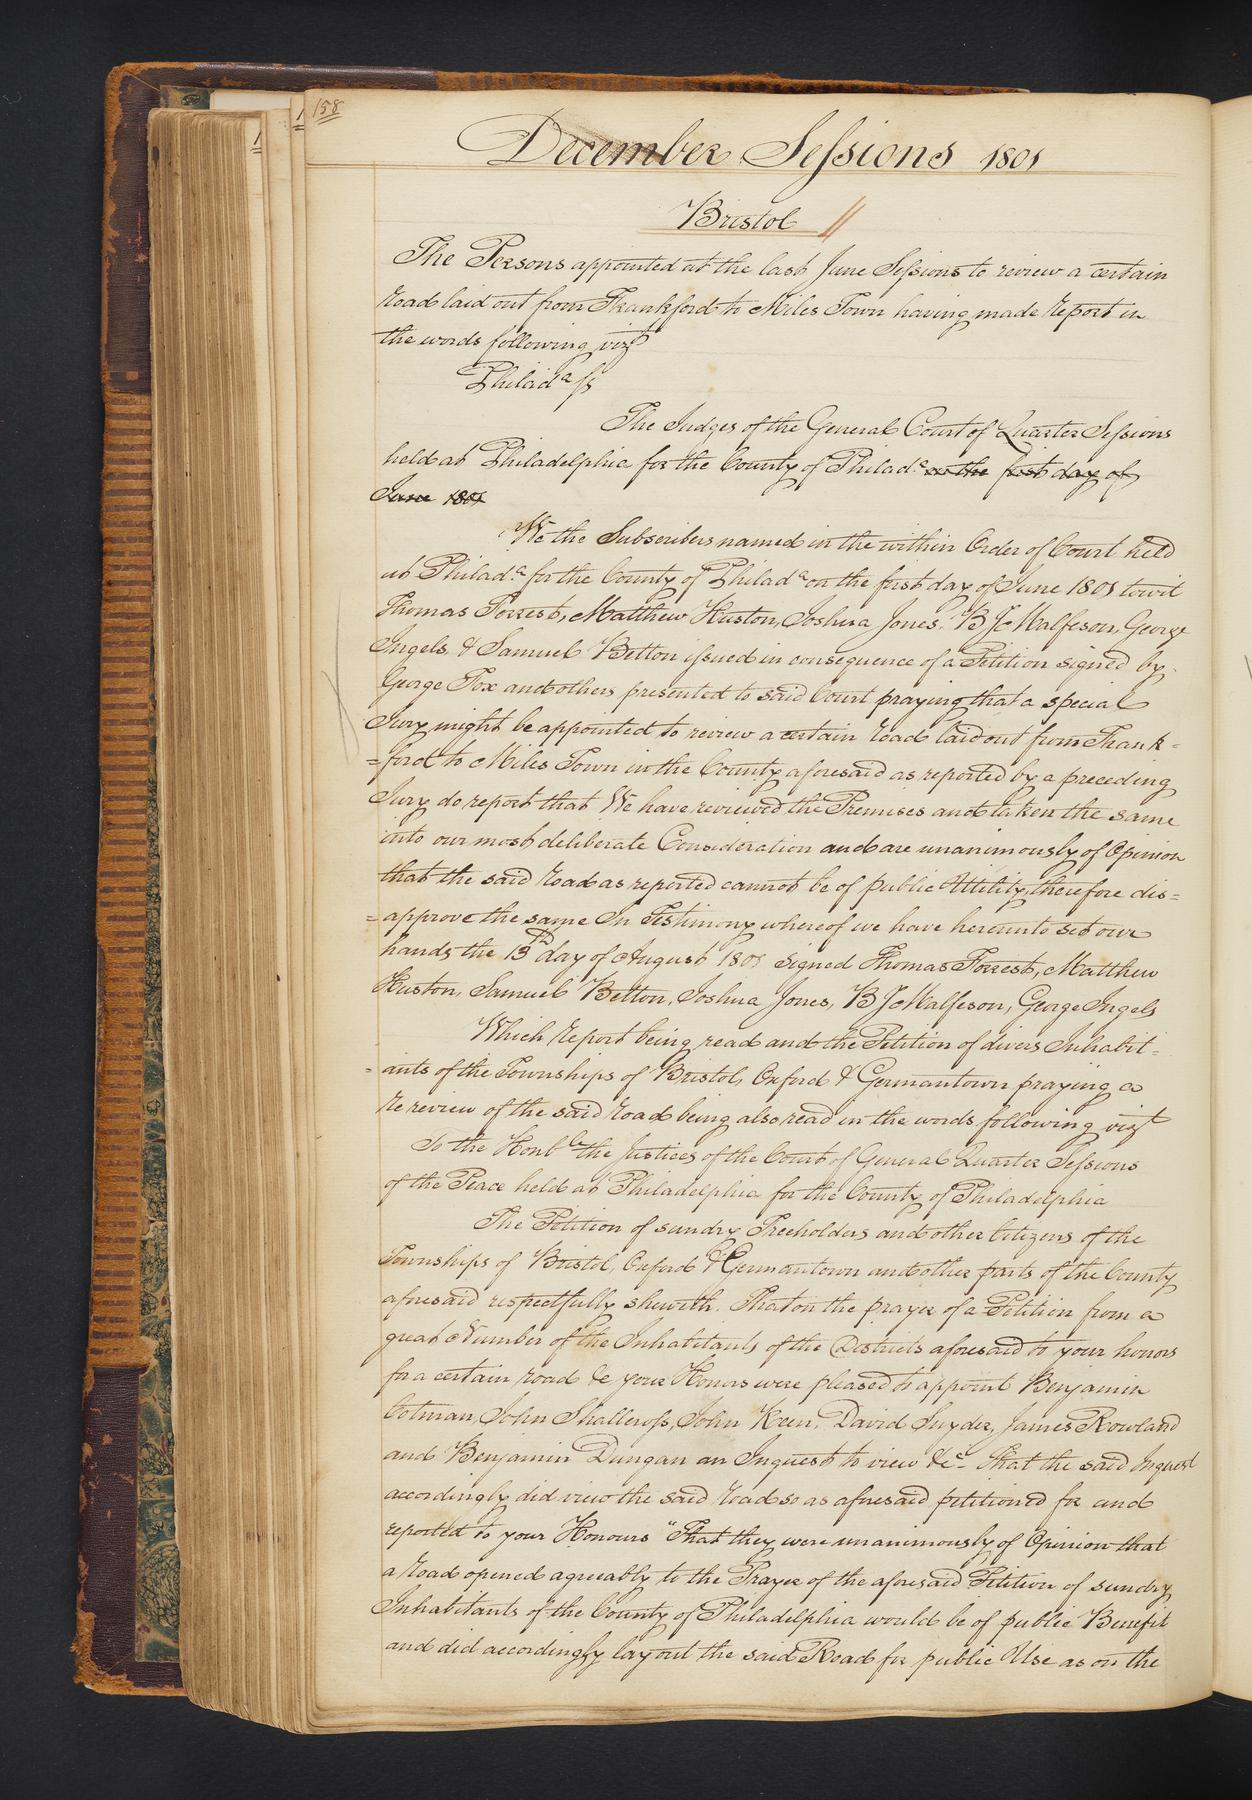 158
December Sessions 1801
Bristol //
The Persons appointed at the last June Sessions to review a certain
road laid out from Frankford to Miles Town having made report in
the words following vizt
Philada ss
The Judges of the General Court of Quarter Sessions
held at Philadelphia for the County of Philada on the first day of
June 1801
We the Subscribers named in the within Order of Court held
at Philada for the County of Philada on the first day of June 1801 towit
Thomas Forrest, Matthew Huston, Joshua Jones, B George
Ingels & Samuel Betton issued in consequence of a Petition signed by
George Fox and others presented to said Court praying that a special
Jury might be appointed to review a certain road laid out from Frank=
=ford to Miles Town in the County aforesaid as reported by a preceding
Jury do report that We have reviewed the Premises and taken the same
into our most deliberate Consideration and are unanimously of Opinion
that the said road as reported cannot be of public Utility, therefore dis=
=approve the same In Testimony whereof we have hereunto set our
hands the 13th day of August 1801 signed Thomas Forrest, Matthew
Huston, Samuel Betton, Joshua Jones, B George Ingels
Which report being read and the Petition of divers Inhabit=
=ants of the Townships of Bristol, Oxford & Germantown praying a
re review of the said road being also read in the words following vizt
To the Honble the Justices of the Court of General Quarter Sessions
of the Peace held at Philadelphia for the County of Philadelphia
The Petition of sundry Freeholders and other Citizens of the
Townships of Bristol, Oxford & Germantown and other parts of the County
aforesaid respectfully sheweth. That on the prayer of a Petition from a
great Number of the Inhabitants of the Districts aforesaid to your honors
for a certain road &c your Honors were pleased to appoint Benjamin
Cotman, John Shallcross, John Keen, David Snyder, James Rowland
and Benjamin Dungan an Inquest to view &c- That the said Inquest
accordingly did view the said road so as aforesaid petitioned for and
reported to your Honours "That they were unanimously of Opinion that
a road opened agreeably to the Prayer of the aforesaid Petition of sundry
Inhabitants of the County of Philadelphia would be of public Benefit
and did accordingly lay out the said Road for public Use as on the